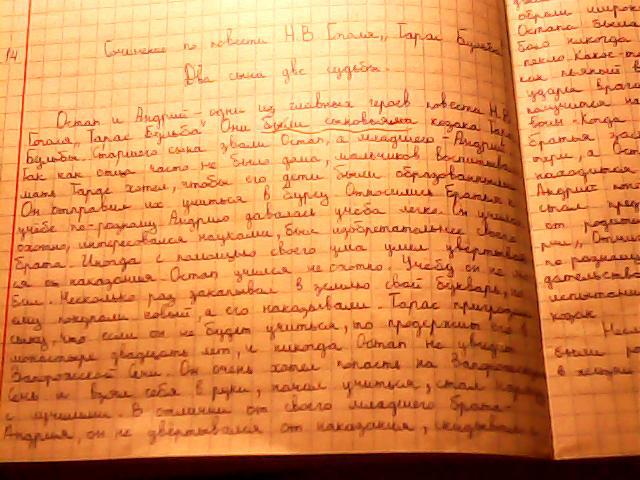 14
Сочинение по повести Н.В Гоголя „Тарас Бульба
Два сына две судьбы.
Остап и Андрий – одни из главных героев повести Н.В.
Гоголя „Тарас Бульба" Они были сыновьями козака Тараса
Бульбы. Старшего сына звали Остап, а младшего – Андрий
Так как отца часто не было дома, мальчиков воспитывала
мать Тарас хотел, чтобы его дети были образованными
Он отправил их учиться в бурсу. Относились братья к
учёбе по-разному. Андрию давалась учёба легко. Он учился
охотно, интересовался науками, был изобретательнее своего
брата. Иногда с помощью своего ума умел увёртывать
ся от наказания Остап учился не охотно. Учёбу он не лю
бил. Несколько раз закапывал в землю свой букварь, но
ему покупали новый, а его наказывали. Тарас пригрозил
сыну, что если он не будет учиться, то продержит его в
монастыре двадцать лет, и никогда Остап не увидит
Запорожской Сечи. Он очень хотел попасть на Запорожскую
Сечь и взял себя в руки, начал учиться, стал наравне
с лучшими. В отличии от своего младшего брата
Андрия, он не увёртывался от наказания, скидывал
обрели широк
Остапа была
было никогда
пекло. Какое-т
как пьяный в
удара врага
бою. Когда
братья
тери, а Оста
находится
Андрий поп
стал пред
от родите
по-разному
дательство
испытани
козак
были ро